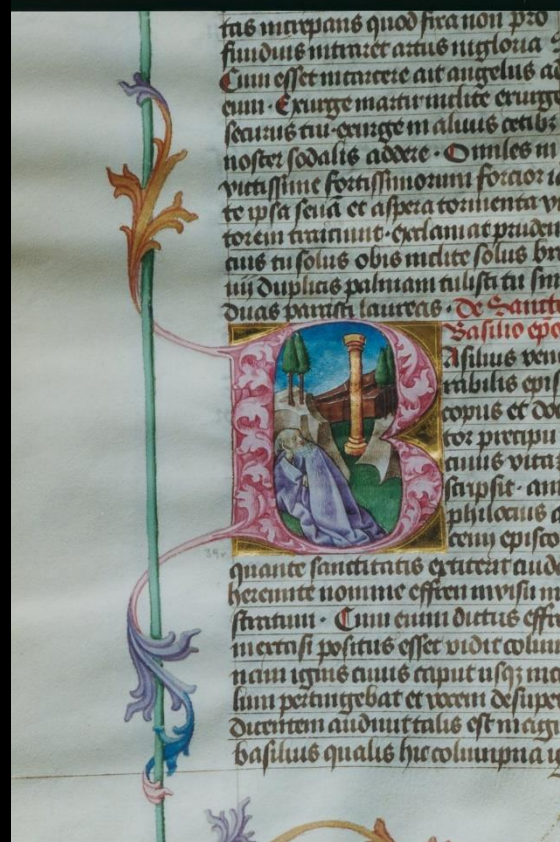 tas increpans quod fixa non pro
funduis intraret artus nigloria
Cum esset in carcere ait angelus ad
eum · Exurge martir inclite exurge
securus tui · exurge m alnus cetibz
noster sodalis addere · O miles in
victissime fortissimorum forcior i
te ipsa seua et aspera tormenta vi
torem tremunt · exclamat pruden
cius tu solus o bis inclite solus br
uij duplicis palmam tulisti tu sm
duas parasti laureas · De Sancto
Basilio epo
Basilius ven
rabilis epis
copus et doc
tor precipu
cuius vitam
scripsit · am
philocius
ceny episco
quante sanctitatis extiterit cuida
heremite nomine effren in visu m
stratum · Cum enim dictus effre
in extasi positus esset vidit colum
nam ignis cuius caput usqz in ce
lum pertingebat et vocem desuper
dicentem audiuit talis est magn
basilius qualis hic columpna i
39v